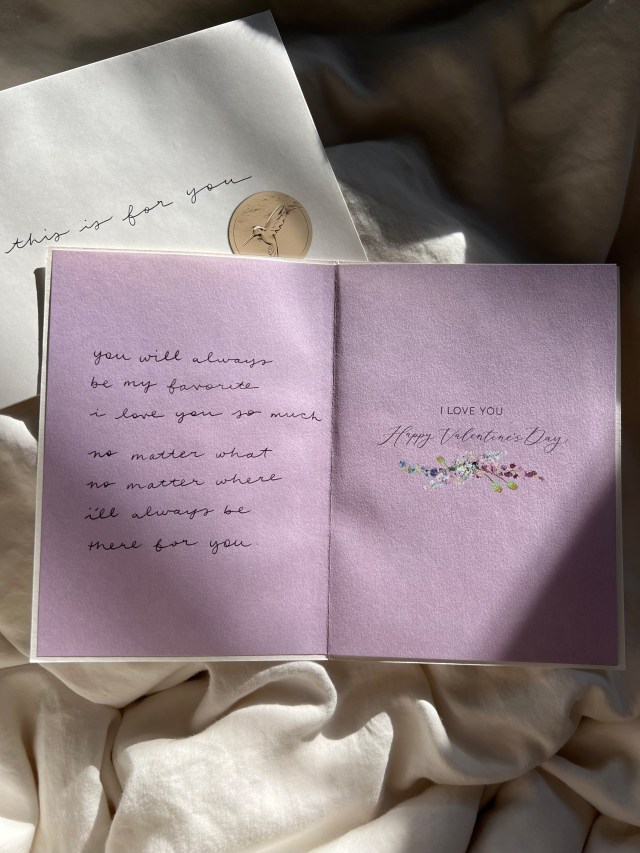 this is for you
you will always
be my favorite
i love you so much
no matter what
no matter where
i'll always be
there for you
I LOVE YOU
Happy Valentine's Day